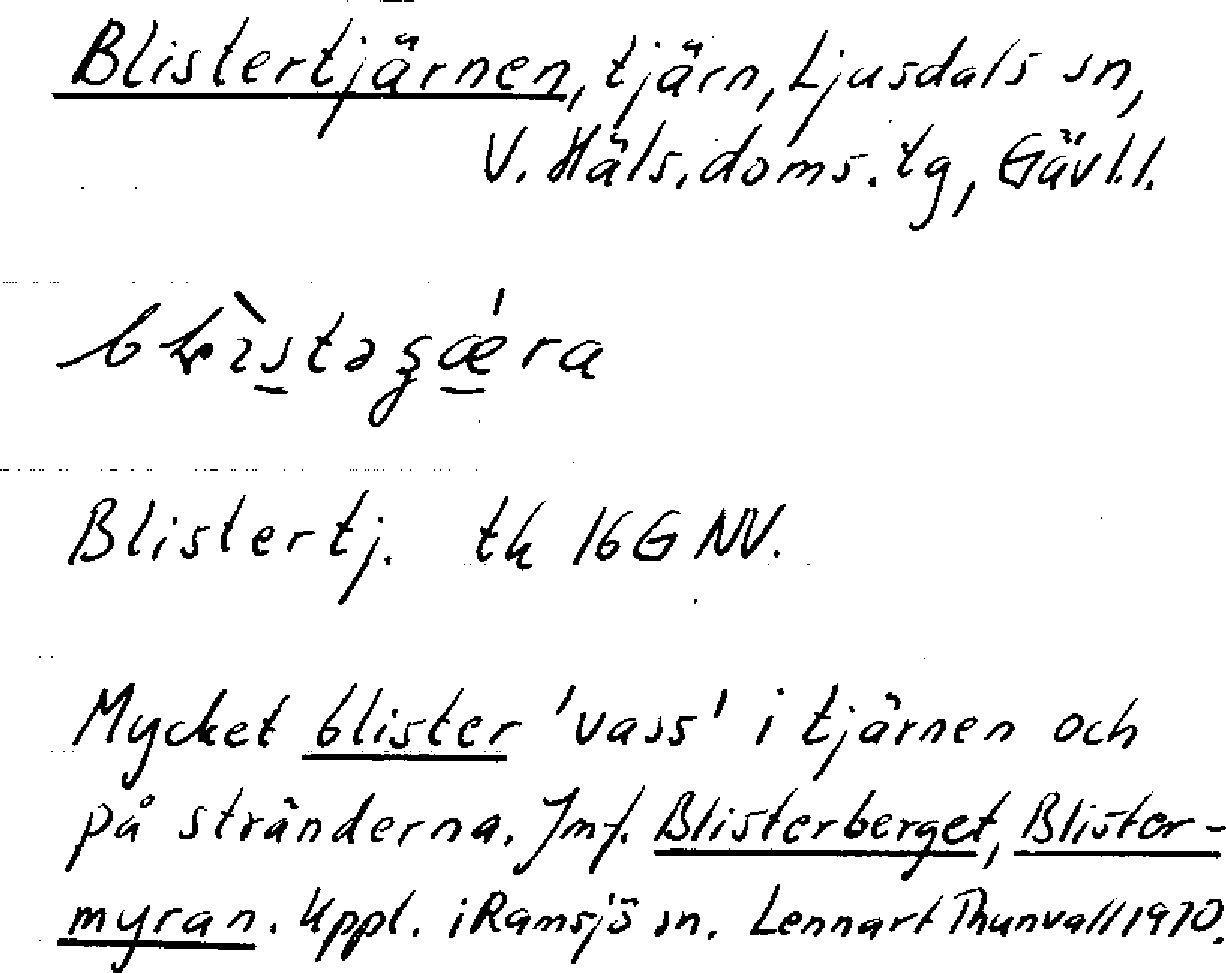 Blistertjärnen, tjärn, Ljusdals sn,
V. Häls. doms. tg, Gävl.l.
Blistertj. tk 16G NV.
Mycket blister 'vass' i tjärnen och
på stränderna. Jmf. Blisterberget, Blister-
myran. Uppl. i Ramsjö sn. Lennart Thunvall 1970.